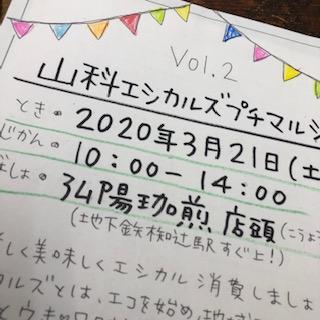 Vol.2
山科エシカルズプチマルシ
とき。2020年3月21日(土
じかん。10:00-14:00
ばしょ。弘陽珈煎店頭(こうよう
(地下鉄椥辻駅すぐ上!)
しく美味しくエシカル消費しましょ
カルズとは、エコを始め、地域